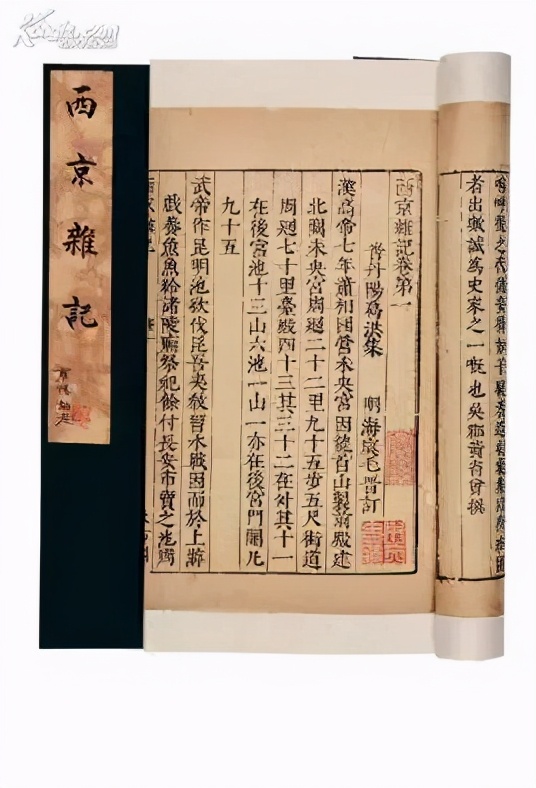 西京雜記
者出誠爲史家之一也吳郡黃省曾撰
西京雜記卷第一
晉丹陽葛洪集 明海虞毛晉訂
漢高帝七年蕭相國營未央宮因龍首山製前殿建
北闕未央宮周迴二十二里九十五步五尺街道
周迴七十里臺殿四十三其三十二在外其十一
在後宮池十三山六池一山一亦在後宮門闥凡
九十五
武帝作昆明池欲伐昆吾夷教習水戰因而於上游
戲養魚魚給諸陵廟祭祀餘付長安市賣之池周